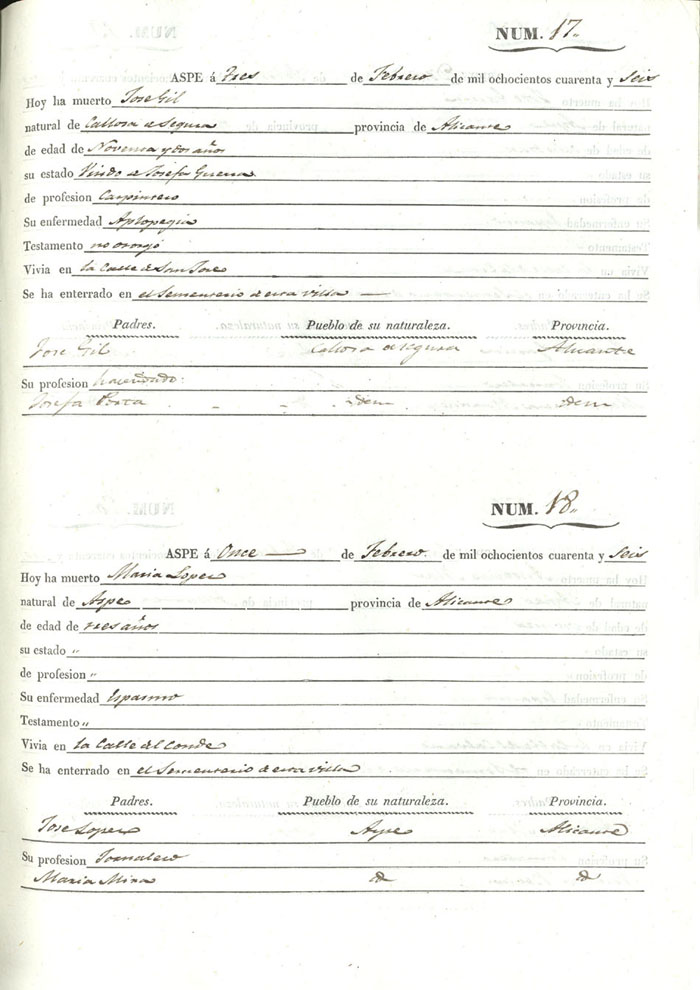 NUM. 17.
ASPE á tres de Febrero de mil ochocientos cuarenta y seis
Hoy ha muerto Jose Gil
natural de Callosa de Segura provincia de Alicante
de edad de Noventa y dos años
su estado Viudo de Josefa Guerra
de profesion Carpintero
Su enfermedad Aplopegia
Testamento no otorgó
Vivia en la Calle de San Jose
Se ha enterrado en el Sementerio de esta villa
Padres. Pueblo de su naturaleza. Provincia.
Jose Gil Callosa de Segura Alicante
Su profesion hacendado
Josefa idem idem
NUM. 18.
ASPE á Once de Febrero. de mil ochocientos cuarenta y seis
Hoy ha muerto Maria Lopez
natural de Aspe provincia de Alicante
de edad de tres años
su estado "
de profesion "
Su enfermedad Espasmo
Testamento "
Vivia en la Calle del Conde
Se ha enterrado en el Sementerio de esta villa
Padres. Pueblo de su naturaleza. Provincia.
Jose Lopez Aspe Alicante
Su profesion Jornalero
Maria Mira id id